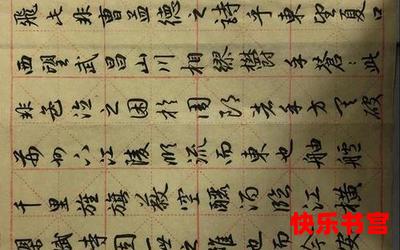 飛此非曹孟德之詩乎東望夏口
西望武昌山川相繆鬱乎蒼〻此
非孟德之困於周郎者乎方其破
荊州下江陵順流而東也舳艫
千里旌旗蔽空釃酒臨江橫
賦詩固一世之雄也而今安
快乐书宫